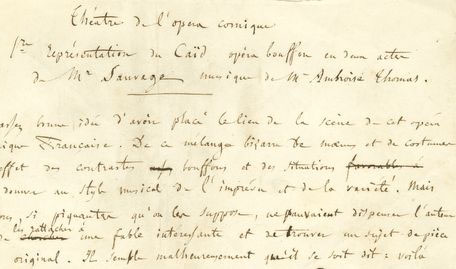 Théâtre de l'opera comique
1re Représentation du Caïd opéra bouffon en deux actes
de Mr Sauvage musique de Mr Ambroise Thomas.
assez bonne idée d'avoir placé le lieu de la scène de cet opéra
ique Française. De ce mélange bizarre de mœurs et de costumes
effet des contrastes bouffons et des situations favorables à
donner au style musical de l'imprévu et de la varieté. Mais
si piquantes qu'on les suppose, ne pouvaient dispenser l'auteur
les rattacher à
de chercher une fable intéressante et de trouver un sujet de pièce
original. Il semble malheureusement qu'il se soit dit : voilà